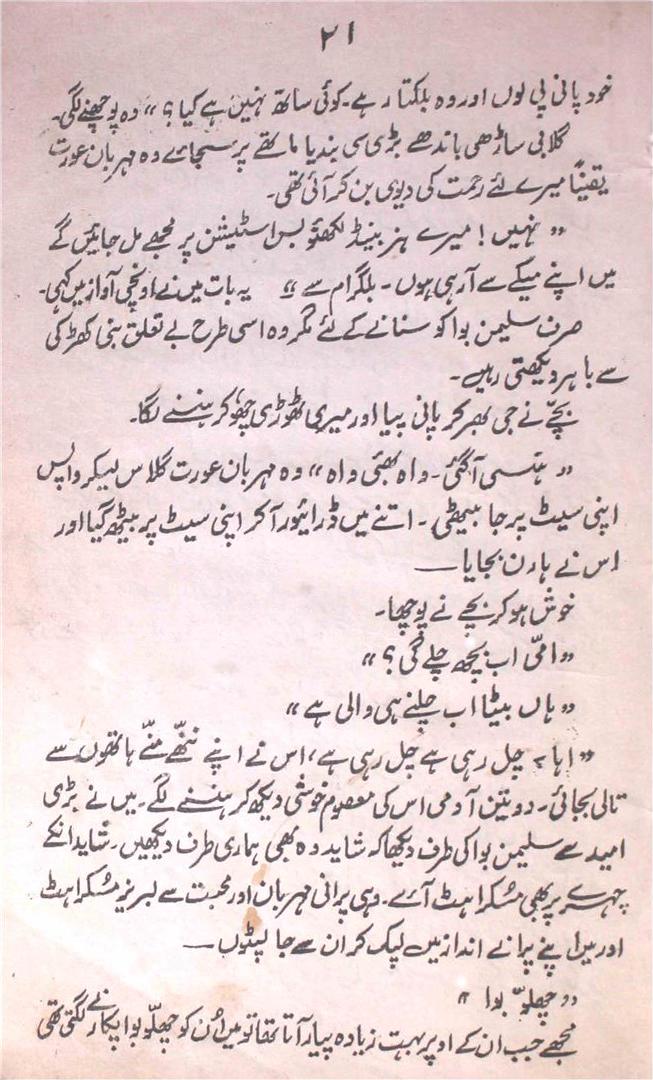 ۲۱
خود پانی پی لوں اور وہ بلکتا رہے۔ کوئی ساتھ نہیں ہے کیا؟ “ وہ پوچھنے لگی۔
گلابی ساڑھی باندھے بڑی سی بندیا ماتھے پر سجائے وہ مہربان عورت
یقیناً میرے لئے رحمت کی دیوی بن کر آئی تھی۔
” نہیں! میرے ہزبینڈ لکھنؤ بس اسٹیشن پر مجھے مل جائیں گے
میں اپنے میکے سے آرہی ہوں۔ بلگرام سے “ یہ بات میں نے اونچی آواز میں کہی۔
صرف سلیمن بوا کو سنانے کے لئے مگر وہ اسی طرح بے تعلق بنی کھڑکی
سے باہر دیکھتی رہیں۔
بچے نے جی بھر کر پانی پیا اور میری ٹھوڑی چھو کر ہنسنے لگا۔
” ہنسی آگئی۔ واہ بھئی واہ “ وہ مہربان عورت گلاس لیکر واپس
اپنی سیٹ پر جا بیٹھی۔ اتنے میں ڈرائیور آکر اپنی سیٹ پر بیٹھ گیا اور
اس نے ہارن بجایا —
خوش ہوکر بچے نے پوچھا۔
” امّی اب بچھ چلے گی؟ “
” ہاں بیٹا اب چلنے ہی والی ہے “
” اہا، چل رہی ہے چل رہی ہے، اس نے اپنے ننھّے منّے ہاتھوں سے
تالی بجائی۔ دو تین آدمی اس کی معصوم خوشی دیکھ کر ہنسنے لگے۔ میں نے بڑی
امید سے سلیمن بوا کی طرف دیکھا کہ شاید وہ بھی ہماری طرف دیکھیں۔ شاید انکے
چہرے پر بھی مسکراہٹ آئے۔ وہی پرانی مہربان اور محبت سے لبریز مسکراہٹ
اور میں اپنے پرانے انداز میں لپک کر ان سے جا لپٹوں —
” چھلّو بوا “
مجھے جب ان کے اوپر بہت زیادہ پیار آتا تھا تو میں اُن کو چھلّو بوا پکارنے لگتی تھی